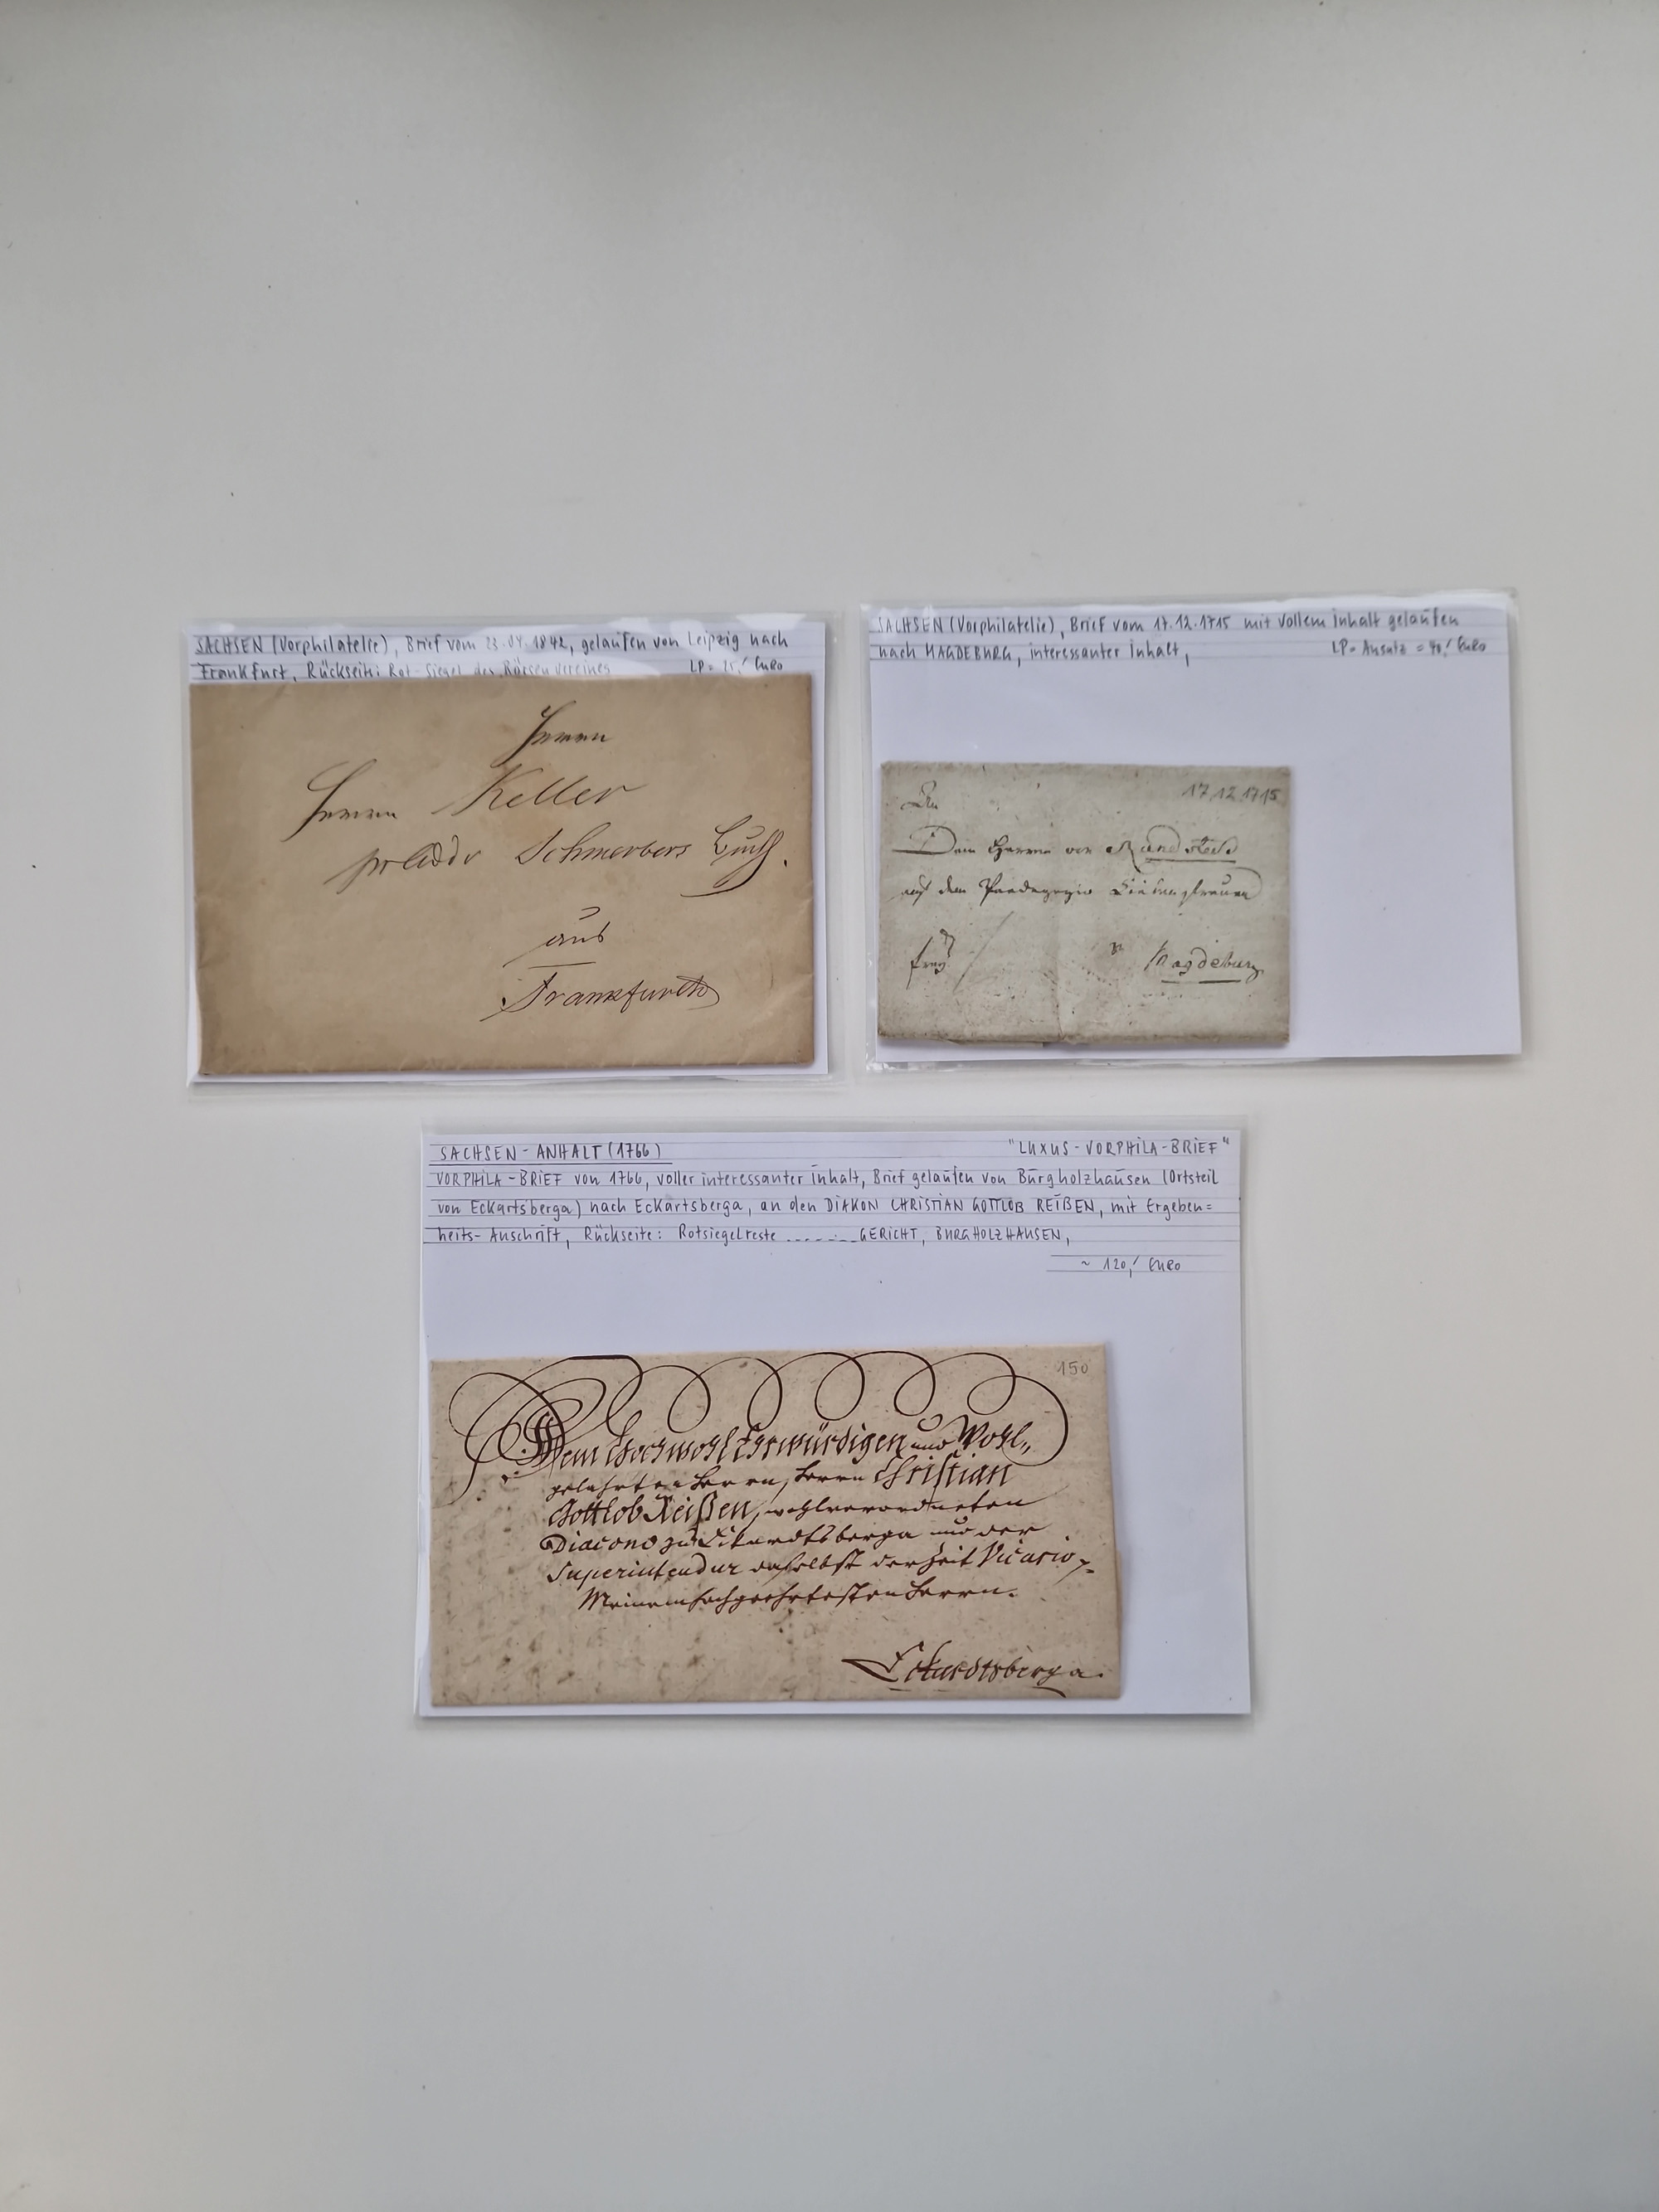 SACHSEN (Vorphilatelie), Brief vom 23.04.1842, gelaufen von Leipzig nach
Frankfurt, Rückseite: Rot-Siegel des Börsenvereines LP = 15,- Euro
Herrn
Herrn Keller
Schmerbers
aus
Frankfurth
SACHSEN (Vorphilatelie), Brief vom 17.12.1715 mit vollem Inhalt gelaufen
nach MAGDEBURG, interessanter Inhalt, LP-Ansatz = 40,- Euro
17.12.1715
Dem Herrn von
auf dem Paedagogio
frey
Magdeburg
SACHSEN-ANHALT (1766) "LUXUS-VORPHILA-BRIEF"
VORPHILA-BRIEF von 1766, voller interessanter Inhalt, Brief gelaufen von Burgholzhausen (Ortsteil
von Eckartsberga) nach Eckartsberga, an den DIAKON CHRISTIAN GOTTLOB REIßEN, mit Ergeben=
heits-Anschrift, Rückseite: Rotsiegelreste ....... GERICHT, BURGHOLZHAUSEN,
~ 120,- EURO
150
Dem Hochwohl Ehrwürdigen und Wohl„
gelahrten Herrn, Herrn Christian
Gottlob Reißen, wohlverordneten
Diacono zu Eckardtsberga und der
Superintendur daselbst der Zeit Vicario,
Meinem hochgeehrtesten Herrn.
Eckardtsberga.